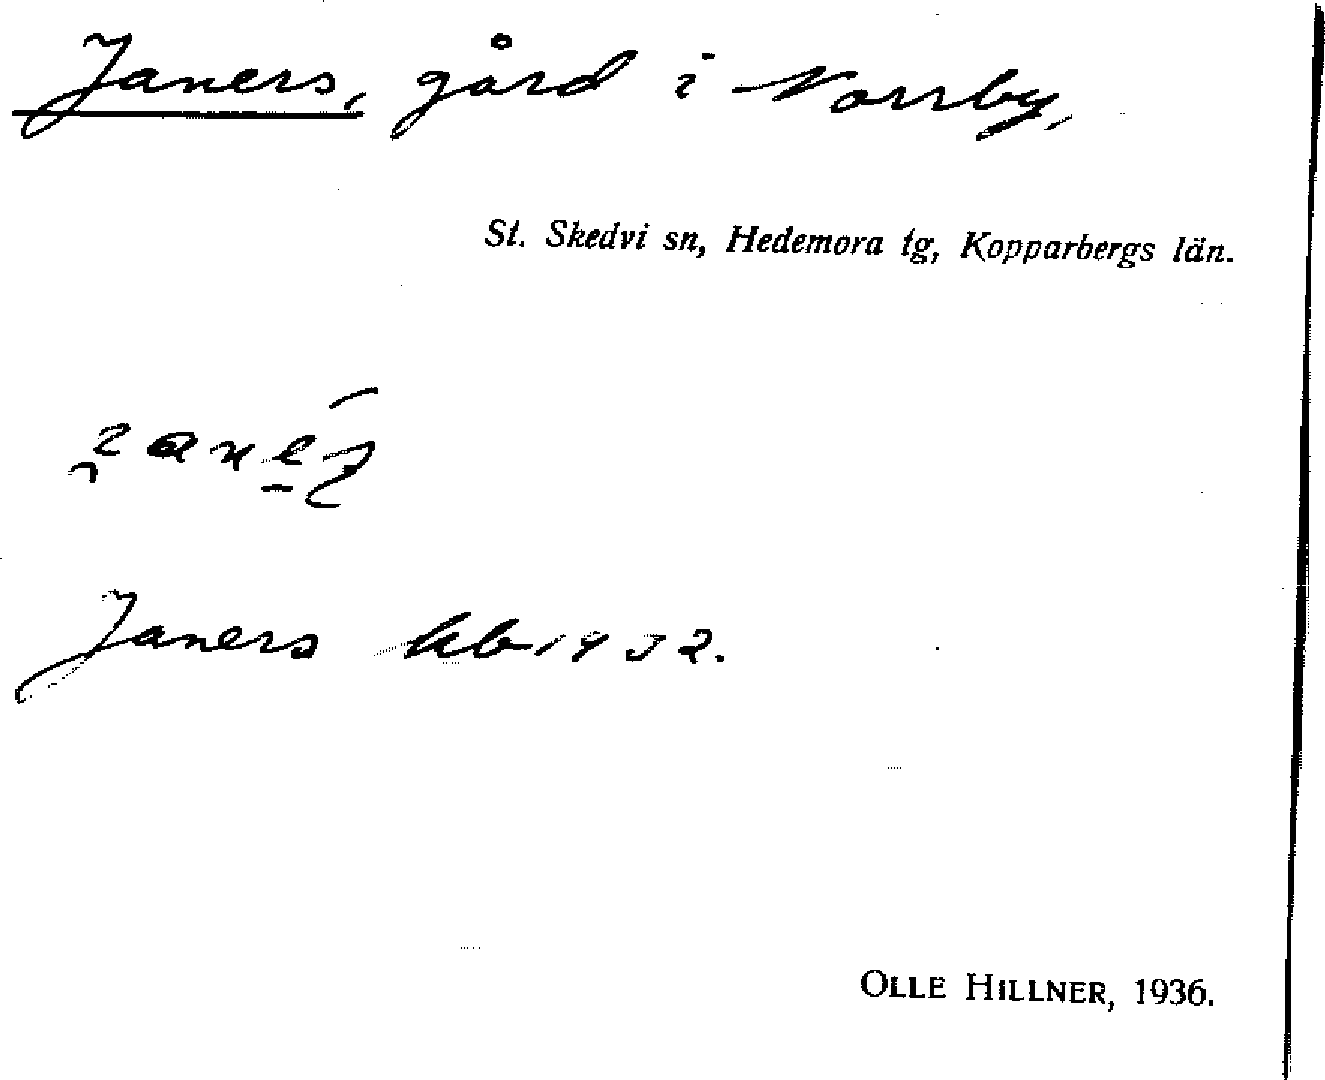 Janers, gård i Norrby,
St. Skedvi sn, Hedemora tg, Kopparbergs län.
Janers kb 1932.
OLLE HILLNER, 1936.